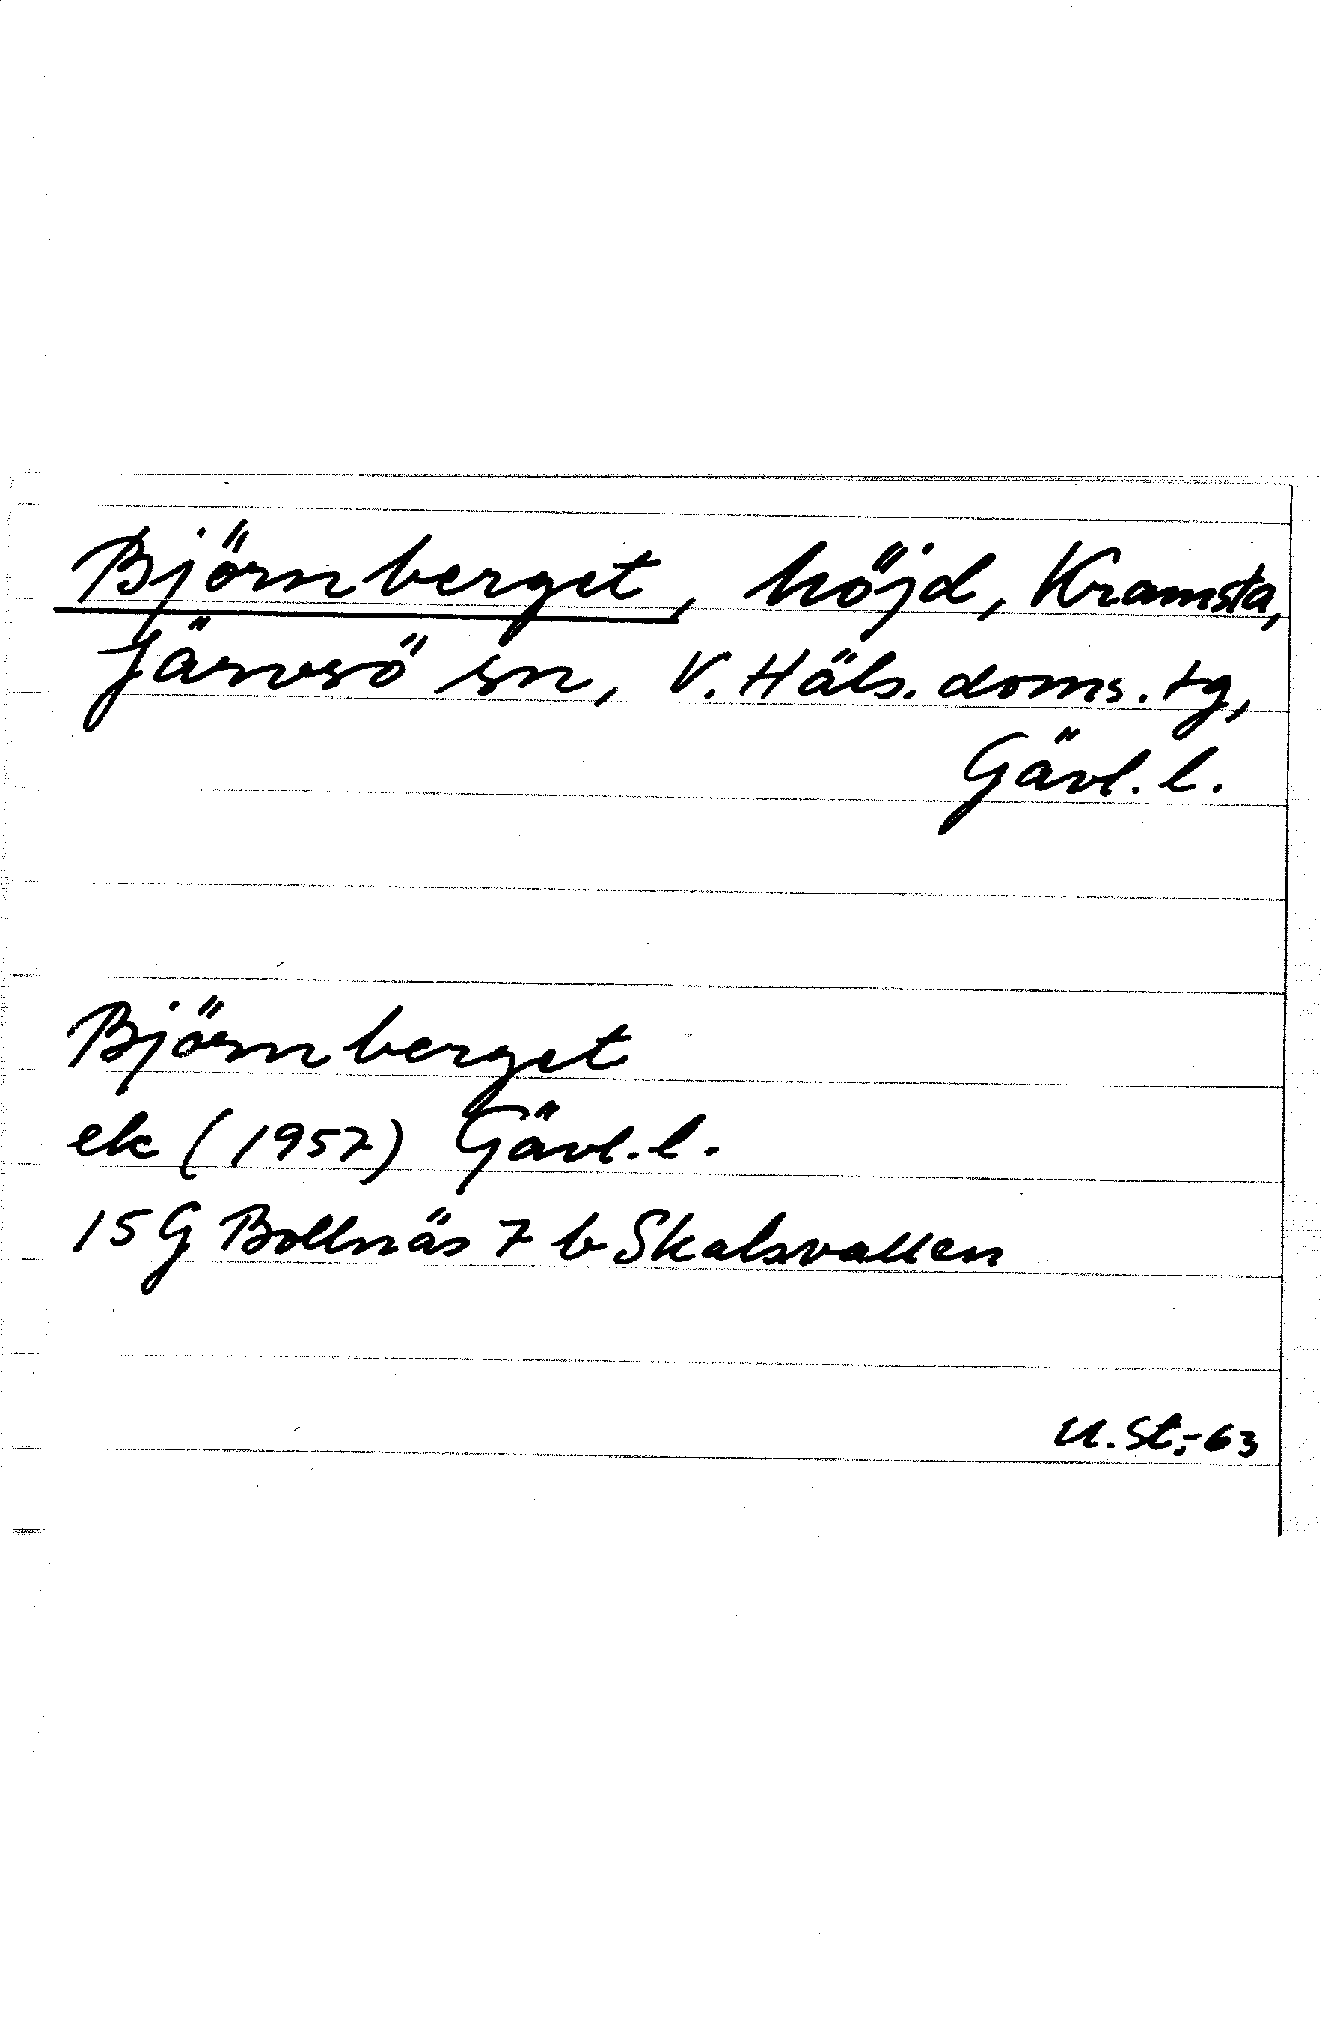 Björnberget, höjd, Kramsta,
Järvsö sn, V. Häls. doms. tg,
Gävl. l.
Björnberget
ek (1957) Gävl. l.
15 G Bollnäs 7 b Skalsvallen
U. St. -63